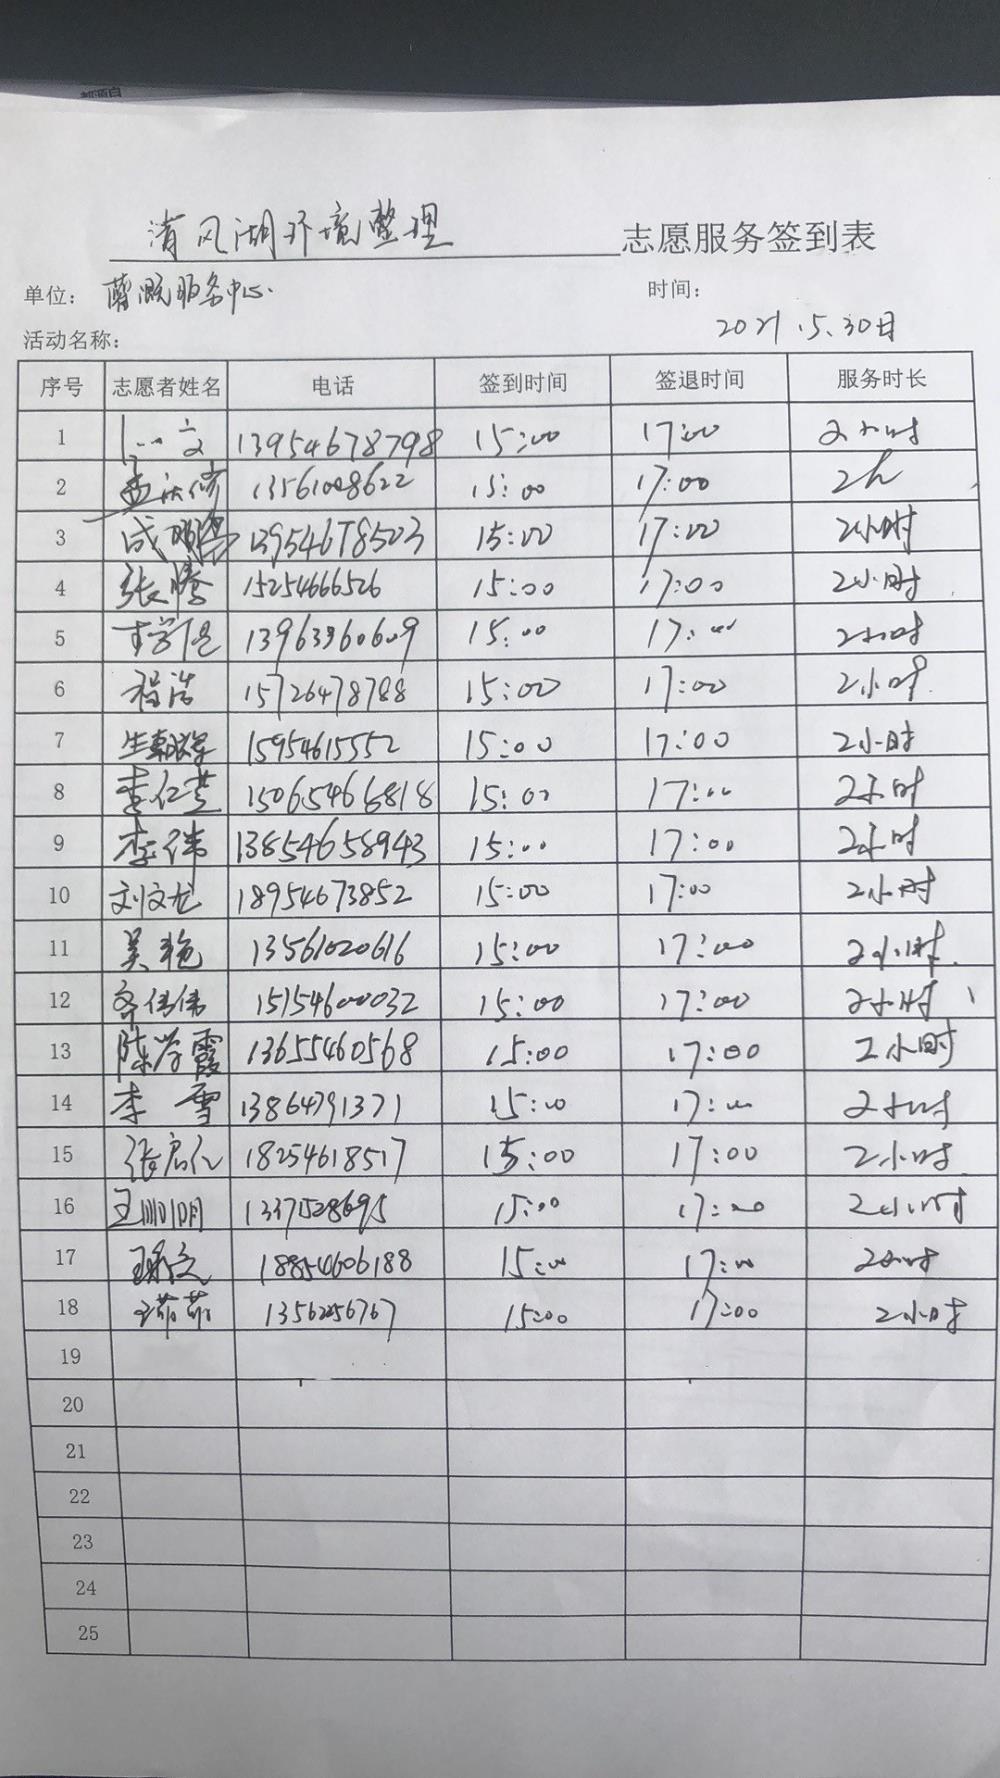 清风湖环境整理 志愿服务签到表
单位： 服务中心. 时间：
2021.5.30日
活动名称：
序号 志愿者姓名 电话 签到时间 签退时间 服务时长
1 13954678798 15:00 17:00 2小时
2 13561008622 15:00 17:00 2h
3 13954678503 15:00 17:00 2小时
4 张腾 15254666526 15:00 17:00 2小时
5 13963360609 15:00 17:00 2小时
6 程浩 15726478788 15:00 17:00 2小时
7 15954615552 15:00 17:00 2小时
8 15065466818 15:00 17:00 2小时
9 李伟 13854658943 15:00 17:00 2小时
10 刘文龙 18954673852 15:00 17:00 2小时
11 吴艳 13561020616 15:00 17:00 2小时
12 15154600032 15:00 17:00 2小时
13 陈学霞 13655460568 15:00 17:00 2小时
14 李雪 13864791371 15:00 17:00 2小时
15 张启仁 18254618517 15:00 17:00 2小时
16 1337528695 15:00 17:00 2小时
17 18854606188 15:00 17:00 2小时
18 15:00 17:00 2小时
19
20
21
22
23
24
25